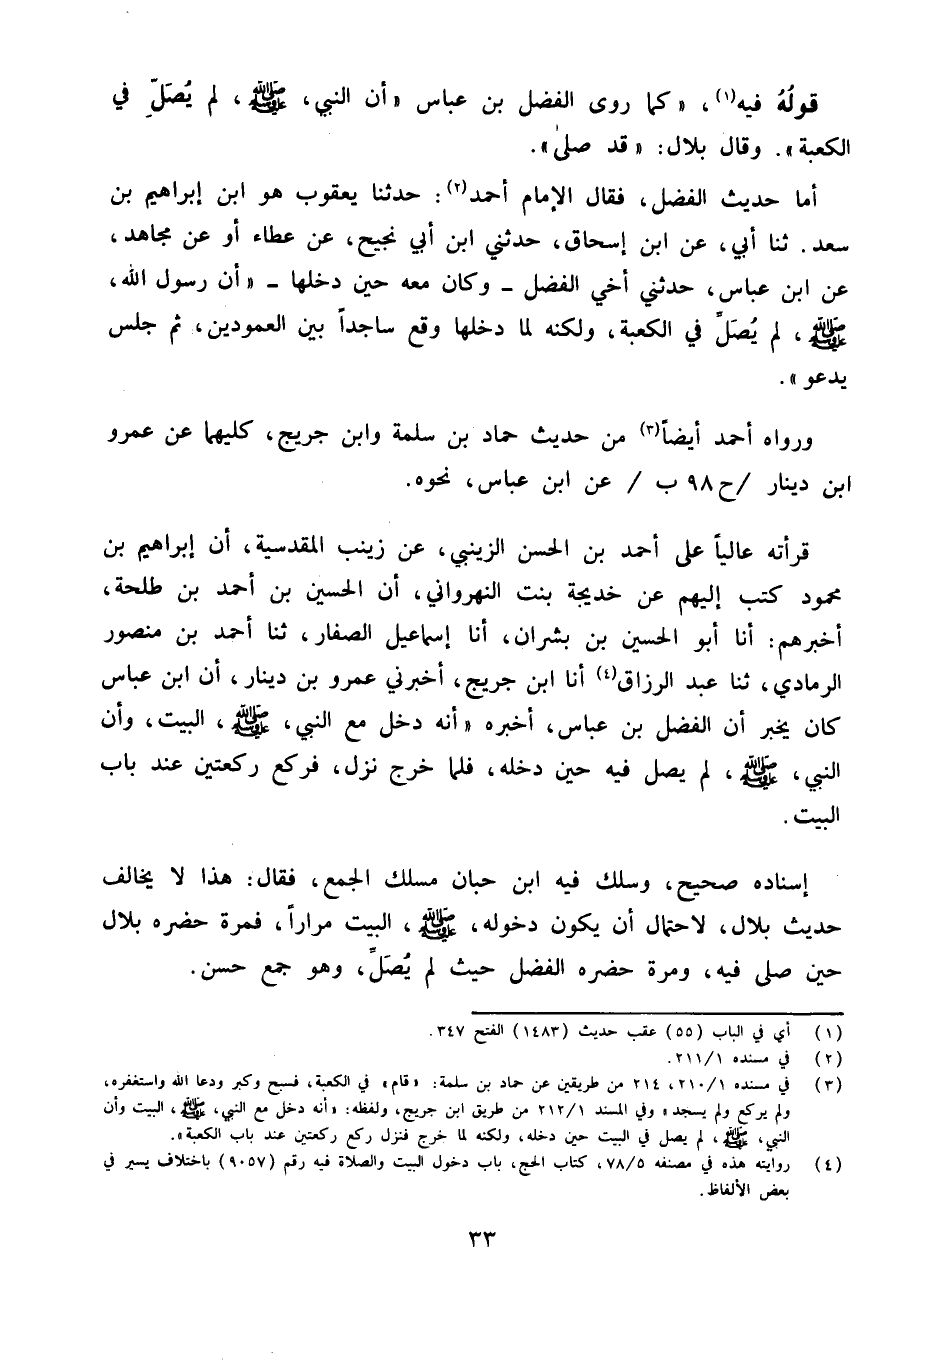 قولُهُ فيه(١)، «كما روى الفضل بن عباس «أن النبي، ﷺ، لم يُصَلِّ في
الكعبة». وقال بلال: «قد صلىٰ».
أما حديث الفضل، فقال الإمام أحمد(٢): حدثنا يعقوب هو ابن إبراهيم بن
سعد. ثنا أبي، عن ابن إسحاق، حدثني ابن أبي نجيح، عن عطاء أو عن مجاهد،
عن ابن عباس، حدثني أخي الفضل ـ وكان معه حين دخلها ـ «أن رسول الله،
ﷺ، لم يُصَلِّ في الكعبة، ولكنه لما دخلها وقع ساجداً بين العمودين، ثم جلس
يدعو».
ورواه أحمد أيضاً(٣) من حديث حماد بن سلمة وابن جريج، كليهما عن عمرو
ابن دينار /ح٩٨ ب / عن ابن عباس، نحوه.
قرأته عالياً على أحمد بن الحسن الزينبي، عن زينب المقدسية، أن إبراهيم بن
محمود كتب إليهم عن خديجة بنت النهرواني، أن الحسين بن أحمد بن طلحة،
أخبرهم: أنا أبو الحسين بن بشران، أنا إسماعيل الصفار، ثنا أحمد بن منصور
الرمادي، ثنا عبد الرزاق(٤) أنا ابن جريج، أخبرني عمرو بن دينار، أن ابن عباس
كان يخبر أن الفضل بن عباس، أخبره «أنه دخل مع النبي، ﷺ، البيت، وأن
النبي، ﷺ، لم يصل فيه حين دخله، فلما خرج نزل، فركع ركعتين عند باب
البيت.
إسناده صحيح، وسلك فيه ابن حبان مسلك الجمع، فقال: هذا لا يخالف
حديث بلال، لاحتمال أن يكون دخوله، ﷺ، البيت مراراً، فمرة حضره بلال
حين صلى فيه، ومرة حضره الفضل حيث لم يُصَلِّ، وهو جمع حسن.
(١) أي في الباب (٥٥) عقب حديث (١٤٨٣) الفتح ٣٤٧.
(٢) في مسنده ٢١١/١.
(٣) في مسنده ٢١٠/١، ٢١٤ من طريقين عن حماد بن سلمة: «قام» في الكعبة، فسبح وكبر ودعا الله واستغفره،
ولم يركع ولم يسجد» وفي المسند ٢١٢/١ من طريق ابن جريج، ولفظه: «أنه دخل مع النبي، ﷺ، البيت وأن
النبي، ﷺ، لم يصل في البيت حين دخله، ولكنه لما خرج فنزل ركع ركعتين عند باب الكعبة».
(٤) روايته هذه في مصنفه ٧٨/٥، كتاب الحج، باب دخول البيت والصلاة فيه رقم (٩٠٥٧) باختلاف يسير في
بعض الألفاظ.
٣٣